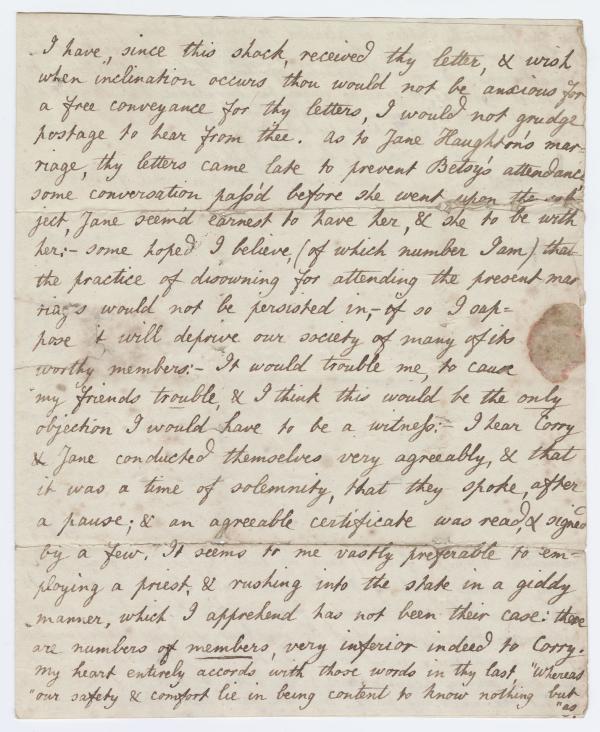 I have, since this shock, received thy letter, & wish
when inclination occurs thou would not be anxious for
a free conveyance for thy letters, I would not grudge
postage to hear from thee. as to Jane Haughton's mar-
riage, thy letters came late to prevent Betsy's attendance
some conversation pass'd before she went upon the sub-
ject, Jane seemd earnest to have her, & she to be with
her:- some hoped I believe, (of which number I am) that
the practice of disowning for attending the present mar
riags would not be persisted in,- if so I sup=
pose it will deprive our society of many of its
worthy members:- It would trouble me, to cause
my friends trouble, & I think this would be the only
objection I would have to be a witness:- I hear Corry
& Jane conducted themselves very agreeably, & that
it was a time of solemnity, that they spoke, after
a pause; & an agreeable certificate was read, & signed
by a few. It seems to me vastly preferable to em=
ploying a priest, & rushing into the state in a giddy
manner, which I apprehend has not been their case: there
are numbers of members, very inferior indeed to Corry.
My heart entirely accords with those words in thy last, "Whereas
"our safety & comfort lie in being content to know nothing but
"as